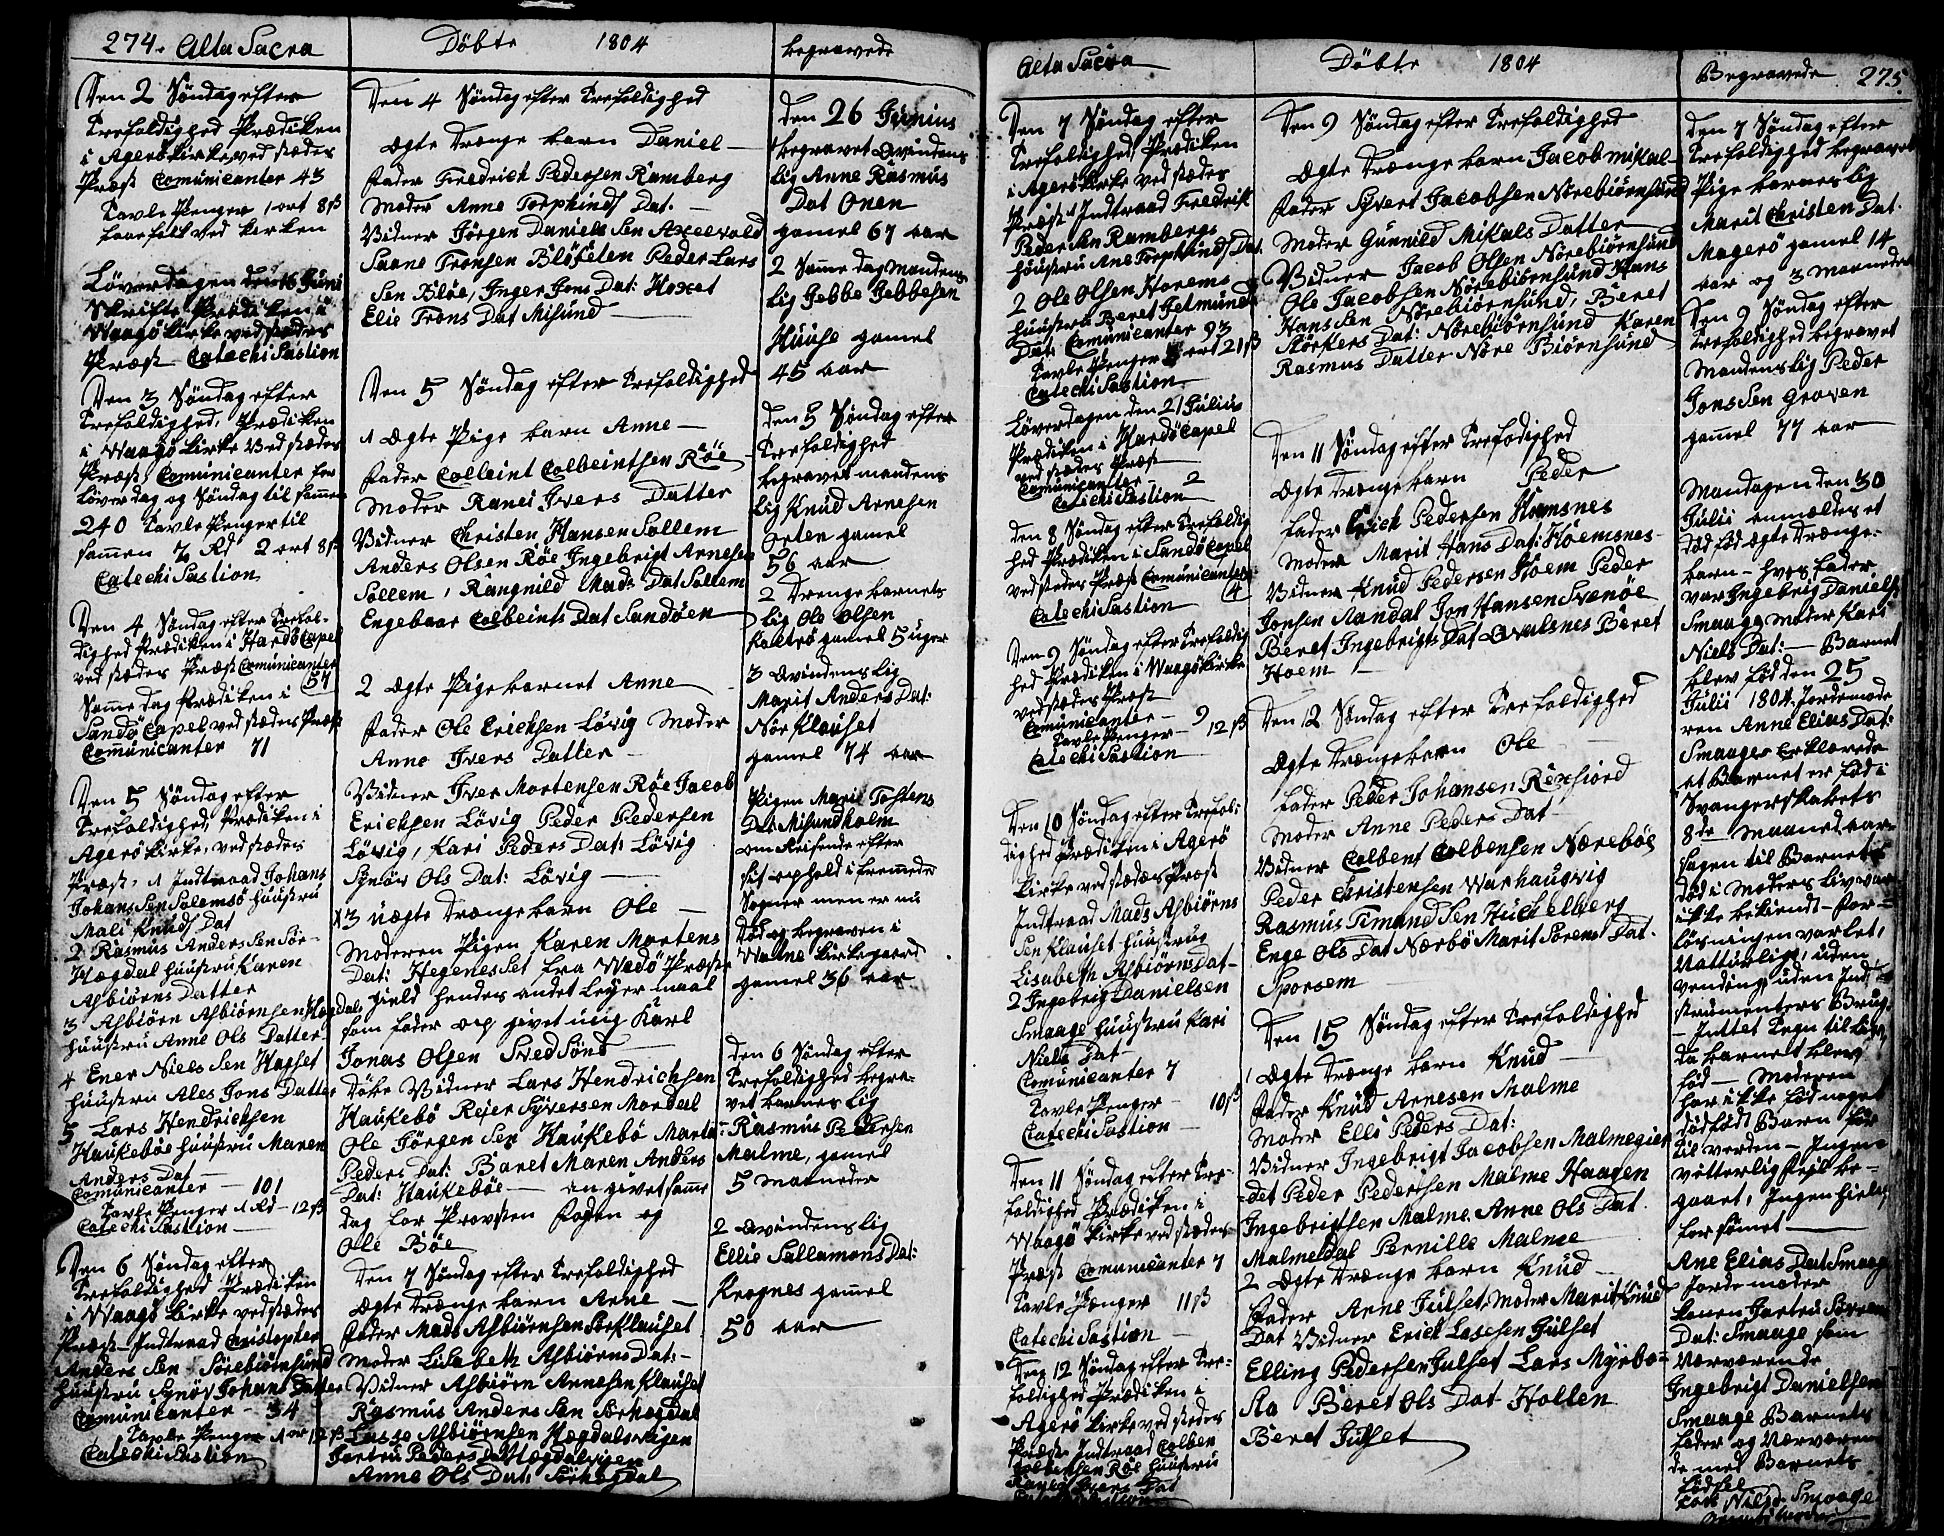 274. Alta Sacra
Den 2 Søndag efter
Trefoldighed Prædiken
i Agerø Kirke ved stædes
Præst Comunicanter 43
Tavle Penger 1 ort 8 ß
ved kirken
Løverdagen den 16 Juni
Skrifte Prædiken i
Waagø Kirke ved stædes
Præst Catechisastion
Den 3 Søndag efter
Trefoldighed, Prædiken
i Waagø Kirke ved stædes
Præst, Comunicanter for
Løverdag og Søndag til sammen
240 Tavle Penger til
sammen Rd 2 ort 8 ß
Catechisastion
Den 4 Søndag efter Trefol-
dighed Prædiken i Hardø Capel
ved stædes Præst Comunicanter
57
Samme dag Prædiken i
Sandø Capel ved stædes Præst
Comunicanter 71
Den 5 Søndag efter
Trefoldighed, Prædiken i
Agerø Kirke, ved stædes
Præst, 1 Indtraad Johans
Johansen Solemsø huustru
Mali Knuds Dat
2 Rasmus Andersen Sør-
Hægdal huustru Karen
Asbiørns Datter
3 Asbiørn Asbiørnsen Hogdal
huustru Anne Ols Datter
4 Ener Nielsen Hapset
huustru Ales Jons Datter
5 Lars Hendrichsen
Haukebøe huustru Maren
Anders Dat
Comunicanter — 101
Tavle Penger 1 Rd — 12 ß
Catechisastion —
Den 6 Søndag efter
Trefoldighed Prædiken
i Waagø Kirke ved stædes
Præst — Indtraad Christopher
Andersen Sørebiørnsund
huustru Synøv Johans Datter
Comunicanter — 34
Tavle Penger 1 or 12 ß
Catechisastion
Døbte 1804
Den 4 Søndag efter Trefoldighed
Ægte Drænge barn Daniel —
Fader Fredrich Pedersen Ramberg
Moder Anne Torphinds Dat. —
Vidner Jørgen Danielsen Axelvold
Saane Tronsen Bløfelen Peder Lars
Sen Bløe, Inger Jons Dat: Hoxet
Elie Trons Dat Misund —
Den 5 Søndag efter Trefoldighed
1 Ægte Pige barn Anne —
Fader Colleint Colbeintsen Røe
Moder Ranei Ivers Datter
Vidner Christen Hansen Sollem
Anders Olsen Røe Ingebrigt Arnesen
Sollem, Rangnild Mads Dat Sollem
Engebaar Colbeints Dat Sandøen
2 Ægte Pige barnet Anne
Fader Ole Erichsen Løvig Moder
Anne Ivers Datter —
Vidner Iver Mortensen Røe Jacob
Erichsen Løvig Peder Pedersen
Løvig, Kari Peders Dat: Løvig
Synøv Ols Dat: Løvig —
3 uægte Drænge barn Ole —
Moderen Pigen Karen Mortens
Dat: Hegenesset fra Wedø Præste
gield hendes andet Leyermaal
som fader opgivet Karl
Jonas Olsen Svedsønd —
Døbe Vidner Lars Hendrichsen
Haukebø Rejer Syversen Mordal
Ole Jørgensen Haukebø Marta
Peders Dat: Baret Maren Anders
Dat: Haukebøe — angivet samme
dag for Provsten Fogden og
Ole Bøe
Den 7 Søndag efter Trefoldighed
Ægte Drænge barn Arne —
Fader Mads Asbiørnsen Sør Klauset
Moder Lisabeth Asbiørns Dat: —
Vidner Asbiørn Annesen Klauset
Rasmus Andersen Sørhogdal
Lasse Asbiørnsen Hægdalsvigen
Jortru Peders Dat Hogdalsvigen
Anne Ols Dat: Sørhogdal
begravede
Den 26 Junius
begravet Qvindens
Lig Anne Rasmus
Dat Onen
gamel 67 aar
2 Samme dag Mandens
Lig Jebbe Jebbesen
Huuse gamel
45 aar
Den 5 Søndag efter
Trefoldighed
begravet mandens
Lig Knud Arnesen
Orten gamel
56 aar
2 Drengebarnets
Lig Ole Olsen
gamel 5 uger
3 Qvindens Lig
Marit Anders Dat:
Nør Klauset
gamel 74 aar
Pigen Marit Tostens
Dat Misundholm
om Reisende efter
sit ophold i fremmede
Sogner men er nu
Død og begraven i
Malme Kirkegaard
gamel 36 aar
Den 6 Søndag efter
Trefoldighed begra-
vet barnes Lig
Rasmus Pedersen
Malme, gamel
5 Maaneder
2 Qvindens Lig
Ellie Sallamons Dat:
Krognes gamel
50 aar
Alta Sacra
Den 7 Søndag efter
Trefoldighed Prædiken
i Agerø Kirke ved stædes
Præst 1 Indtraad Fredrik
Pedersen Rambergs
huustru Ane Torphinds Dat
2 Ole Olsen Horems
huustru Beret Jetmunds
Dat: Comunicanter 93
Tavle Penger 3 ort 21 ß
Catechisastion
Løverdagen den 21 Julius
Prædiken i Hardø Capel
ved stædes Præst
Comunicanter — 2
Catechisastion
Den 8 Søndag efter Trefoldig
hed Prædiken i Sandø Capel
ved stædes Præst Comunicanter
Catechisastion 4
Den 9 Søndag efter Trefoldig
hed Prædiken i Waagø Kirke
ved stædes Præst
Comunicanter — 9
Tavle Penger — 12 ß
Catechisastion
Den 10 Søndag efter Trefol:
dighed Prædiken i Agerø
Kirke ved stædes Præst
Indtraad Mads Asbiørns
Sen Klauset huustrug
Lisabeth Asbiørns Dat —
2 Ingebrig Danielsen
Smaage huustru Kari
Niels Dat —
Comunicanter 7
Tavle Penger — 10 ß
Catechisastion —
Den 11 Søndag efter Tre-
foldighed Prædiken i
Waagø Kirke ved stædes
Præst Comunicanter 7
Tavle Penger 11 ß
Catechisastion —
Den 12 Søndag efter Tre-
foldighed Prædiken i
Agerø Kirke ved stædes
Præst Indtraad Colben
Colbensen Røe huustru
Ranei Ivers Dat
Døbte 1804
Den 9 Søndag efter Trefoldighed
Ægte Drænge barn Jacob Mikal —
Fader Syvert Jacobsen Nørebiørnsund
Moder Gunnild Mikals Datter
Vidner Jacob Olsen Nørebiørnsund
Ole Jacobsen Nørebiørnsund Hans
Hanssen Nørebiørnsund, Beret
Størkers Dat: Nørebiørnsund Karen
Rasmus Datter Nøre Biørnsund
Den 11 Søndag efter Trefodighed
Ægte Drænge barn Peder
Fader Erich Pedersen Hamsnes
Moder Marit Hans Dat: Hoemsnes —
Vidner Knud Pedersen Hoem Peder
Jonsen Aandal Jon Hansen Svenøe
Beret Ingebrigts Dat Qvalsnes Beret
Hoem —
Den 12 Søndag efter Trefoldighed
Ægte Drænge barn Ole —
Fader Peder Johansen Rexfiord
Moder Anne Peders Dat —
Vidner Colbent Colbensen Nærebøe
Peder Christensen Warhaugvig
Rasmus Simundsen Huchelberg
Enge Ols Dat Nærbø Marit Sørens Dat.
Sporsem —
Den 15 Søndag efter Trefoldighed
1 Ægte Drænge barn Knud —
Fader Knud Arnesen Malme
Moder Elli Peders Dat:
Vidner Ingebrigt Jacobsen Malmegier
det Peder Pedersen Malme Haagen
Ingebrigtsen Malme Anne Ols Dat
Malmedal Pernille Malme
2 Ægte Drænge barn Knud —
Fader Arne Julset, Moder Marit Knuds
Dat Vidner Erick Lassen Julset
Elling Pedersen Julset Lars Myrbo-
Aa Beret Ols Dat Holten
Beret Julset
Begravede 275.
Den 7 Søndag efter
Trefoldighed begravet
Pige barnes Lig
Marit Christen Dat.
Magerø gamel 14
aar og 3 maaneder
Den 9 Søndag efter
Trefoldighed begravet
Mandens Lig Peder
Jonssen Groven
gamel 77 aar
Mandagen den 30
Julii anmældes et
død fød ægte Drænge-
barn — hves Fader
var Ingebrig Daniels
Smaage Moder Kari
Niels Dat: — Barnet
blev fød den 25
Julii 1804. Jordemode
ren Anne Elias Dat:
Smaages Erklærede
at Barnet er fød i
Svangerskabets
8de Maaned, aar-
sagen til Barnets
død i Moders Liv var
ikke bekiendt — For-
løsningen var let,
Nattürlig, uden
vending uden Ind-
strumenters Brug
— Intet Tegn til Liv,
da barnet blev
fød — Moderen
har ikke fød noget
dødfødt Barn før
til verden — Ingen
vitterlig feil be-
gaaet, Ingen hielp
forsømt —
Ane Elias Dat Smaage
Jordemoder
Konen Jartru Sørens
Dat: Smaage som
Nærværende
Ingebrigt Danielsen
Smaage Barnets
Fader og Nærværen
de med Barnets
Fødsel
Niels Smaage